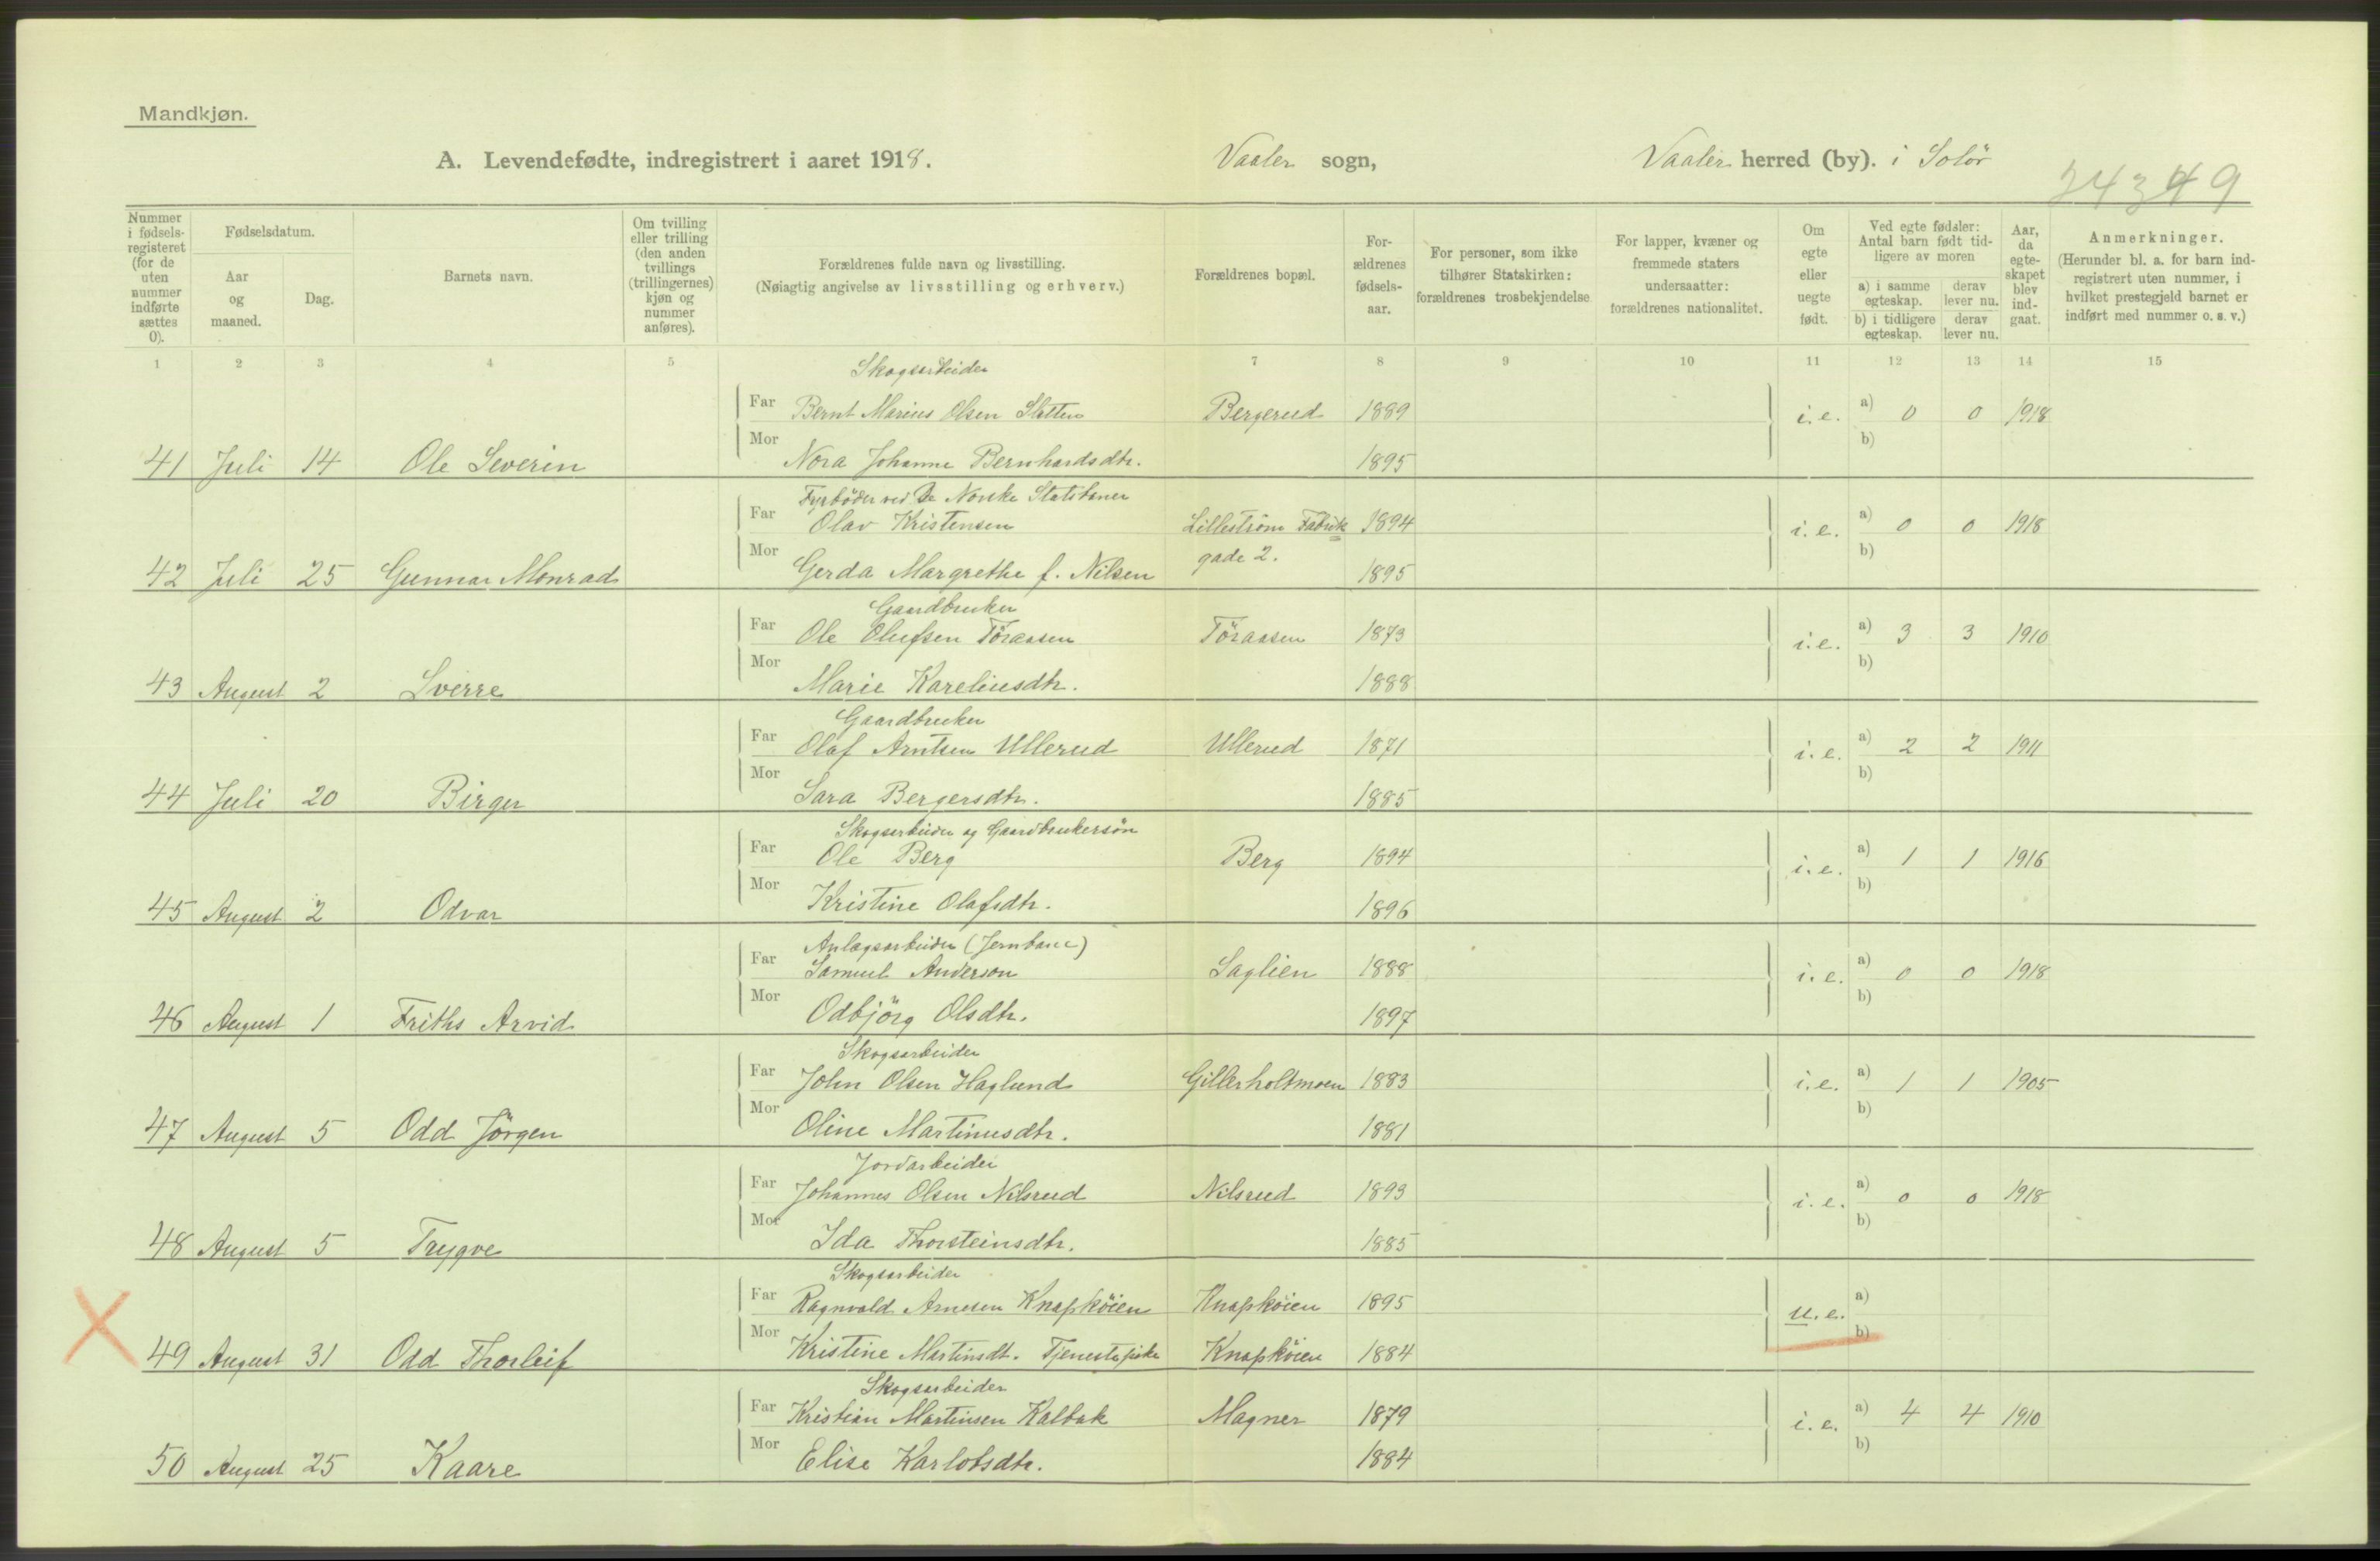 Mandkjøn.
A. Levendefødte, indregistrert i aaret 1918. Vaaler sogn, Vaaler herred (by). i Solör
Nummer i fødselsregisteret (for de uten nummer indførte sættes 0).
Fødselsdatum.
Aar og maaned.
Dag.
Barnets navn.
Om tvilling eller trilling (den anden tvillings (trillingernes) kjøn og nummer anføres).
Forældrenes fulde navn og livsstilling.
(Nøiagtig angivelse av livsstilling og erhverv.)
Forældrenes bopæl.
Forældrenes fødselsaar.
For personer, som ikke tilhører Statskirken: forældrenes trosbekjendelse
For lapper, kvæner og fremmede staters undersaatter: forældrenes nationalitet.
Om egte eller uegte født.
Ved egte fødsler: Antal barn født tidligere av moren
a) i samme egteskap. derav lever nu.
b) i tidligere egteskap. derav lever nu.
Aar, da egteskapet blev indgaat.
Anmerkninger.
(Herunder bl. a. for barn indregistrert uten nummer, i hvilket prestegjeld barnet er indført med nummer o. s. v.)
1 2 3 4 5 7 8 9 10 11 12 13 14 15
Skogsarbeider
Far Bernt Marius Olsen Bergerud 1889 i.e. a) 0 0 1918
Mor b)
41 Juli 14 Ole Severin Nora Johanne Bernhardsdtr. 1895
Fyrböder ved De Norske Statsbaner
Far Olav Kristensen Lilleström Fabrik 1894 i.e. a) 0 0 1918
Mor gade 2. b)
42 Juli 25 Gunnar Monrad Gerda Margrethe f. Nilsen 1895
Gaardbruker
Far Ole Olufsen Töraasen Töraasen 1873 i.e. a) 3 3 1910
Mor b)
43 August 2 Sverre Marie Kareliusdtr. 1888
Gaardbruker
Far Olaf Arntsen Ullerud Ullerud 1871 i.e. a) 2 2 1911
Mor b)
44 Juli 20 Birger Sara Bergersdtr. 1885
Skogsarbeider og Gaardbrukersön
Far Ole Berg Berg 1894 i.e. a) 1 1 1916
Mor b)
45 August 2 Odvar Kristine Olafsdtr. 1896
Anlægsarbeider (Jernbane)
Far Samuel Anderson Saglien 1888 i.e. a) 0 0 1918
Mor b)
46 August 1 Friths Arvid Odbjörg Olsdtr. 1897
Skogsarbeider
Far John Olsen Haglund Gillerholtmoen 1883 i.e. a) 1 1 1905
Mor b)
47 August 5 Odd Jörgen Oline Martinusdtr. 1881
Jordarbeider
Far Johannes Olsen Nilsrud Nilsrud 1893 i.e. a) 0 0 1918
Mor b)
48 August 5 Trygve Ida Thorsteinsdtr. 1885
Skogsarbeider
Far Ragnvald Arnesen Knapköien Knapköien 1895 u.e. a)
Mor b)
49 August 31 Odd Thorleif Kristine Martinsdt. Tjenestepike Knapköien 1884
Skogsarbeider
Far Kristian Martinsen Kalbak Magner 1879 i.e. a) 4 4 1910
Mor b)
50 August 25 Kaare Elise Karlotsdtr. 1884